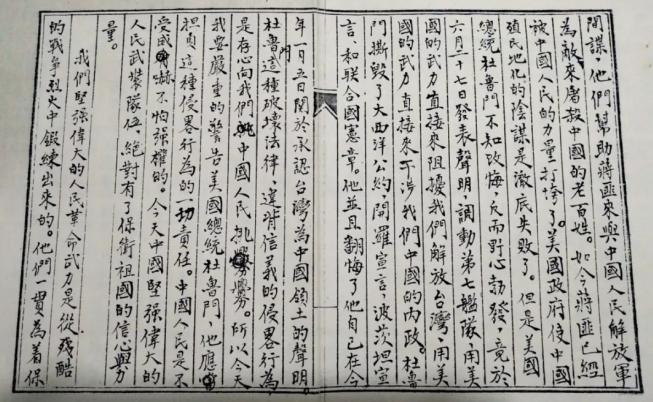 間諜，他們幫助蔣匪來與中國人民解放軍
為敵來屠殺中國的老百姓。如今蔣匪已經
被中國人民的力量打垮了。美國政府使中國
殖民地化的陰謀是澈底失敗了。但是美國
總統杜魯門不知改悔，反而野心勃發，竟於
六月二十七日發表聲明，調動第七艦隊，用美
國的武力直接來阻擾我們解放台灣，用美
國的武力直接來干涉我們中國的內政。杜魯
門撕毀了大西洋公約，開羅宣言，波茨坦宣
言，和聯合國憲章。他並且翻悔了他自己在今
年一月五日關於承認台灣為中國領土的聲明。
杜魯門這種破壞法律，違背信義的侵畧行為，
是存心向我們中國人民挑釁。所以今天
我要嚴重的警告美國總統杜魯門，他應當
担負這種侵畧行為的一切責任。中國人民是不
受威嚇不怕強權的。今天中國堅強偉大的
人民武裝隊伍，絕對有了保衛祖國的信心與力
量。
我們堅強偉大的人民革命武力是從殘酷
的戰爭烈火中鍛練出來的。他們一貫為着保